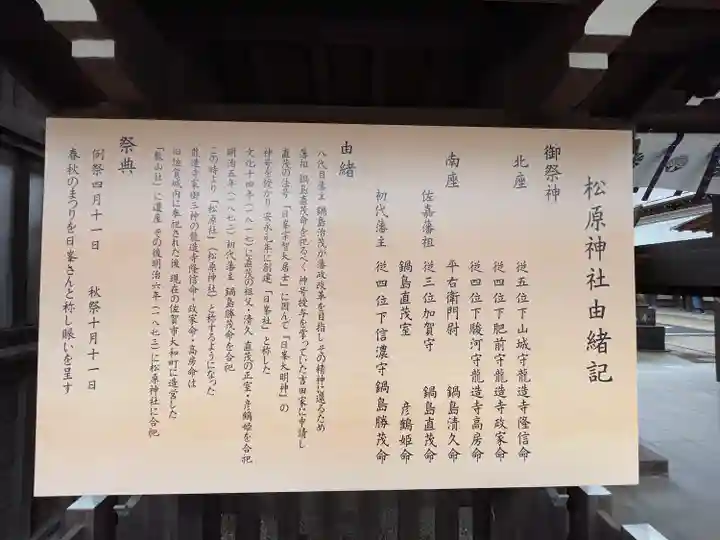 松原神社由緒記
御祭神
北座 従五位下山城守龍造寺隆信命
従四位下肥前守龍造寺政家命
従四位下駿河守龍造寺高房命
南座 平右衛門尉 鍋島清久命
佐嘉藩祖 従三位加賀守 鍋島直茂命
鍋島直茂室 彦鶴姫命
初代藩主 従四位下信濃守 鍋島勝茂命
由緒
八代目藩主 鍋島治茂が藩政改革を目指しその精神に還るため
藩祖 鍋島直茂命を祀るべく 神号授与を掌っていた吉田家に申請し
直茂の法号「日峯宗智大居士」に因んで「日峯大明神」の
神号を授かり 安永元年に創建「日峯社」と称した
文化十四年(一八一七)に直茂の祖父・清久 直茂の正室・彦鶴姫を合祀
明治五年(一八七二)初代藩主 鍋島勝茂命を合祀
この時より「松原社」(松原神社)と称するようになった
龍造寺家御三神の龍造寺隆信命・政家命・高房命は
旧佐賀城内に奉祀された後 現在の佐賀市大和町に造営した
社」に遷座 その後明治六年(一八七三)に松原神社に合祀
祭典
例祭四月十一日 秋祭十月十一日
春秋のまつりを日峯さんと称し賑いを呈す